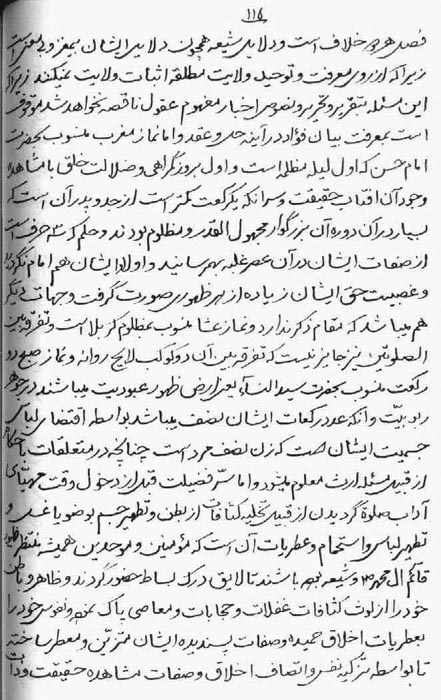 ۱۱۶
فصل هر دو خلاف است و دلایل شیعه همچون دلایل ایشان بیمغز و بی معنی است
زیرا که از روی معرفت و توحید ولایت مطلقه اثبات ولایت نمیکنند زیرا که
این مسئله بتقریر و تحریر و نصوص اخبار مفهوم عقول ناقصه نخواهد شد موقوف
است بمعرفت بیان فؤاد در آینه حل و عقد و اما نماز مغرب منسوب بحضرت
امام حسن که اول لیله مظلمه است و اول بروز گمراهی و ضلالت خلق با مشاهده
وجود آن افتاب حقیقت و سر آنکه یکرکعت کمتر است از جد و پدر آن است که
بسیار در آن دوره آن بزرگوار مجهول القدر و مظلوم بودند و حلم که سه حرف است
از صفات ایشان در آن عصر غلبه بهر رسانید و اولاد ایشان هم امام نگردید
و غصبیت حق ایشان زیاده از هر ظهوری صورت گرفت و جهات دیگر
هم میباشد که مقام ذکر ندارد و نماز عشا منسوب بمظلوم کربلا است و تفرقه بین
الصلوتین نیز جایز نیست که تفرقه بین آن دو کوکب لایح روا نه و نماز صبح دو
رکعت منسوب بحضرت سیدة النساء یعنی ارض ظهور عبودیت میباشند در جوهر
ربوبیت و آنکه عدد رکعات ایشان نصف میباشد بواسطه اقتضای لباس
جسمیت ایشان هست که زن نصف مرد است چنانچه در متعلقات باحکام
از قبیل مسئله ارث معلوم میشود و اما سرّ فضیلت قبل از دخول وقت مهیّای
آداب صلوة گردیدن از قبیل تخلیه کثافات از بطن و تطهیر جسم بوضو یا غسل و
تطهیر لباس و استحمام و عطریات آن است که مؤمنین و موحدین همیشه منتظر ظهور
قائم آل محمد و شیعه باشند تا لایق درک بساط حضور گردند و ظاهر و باطن
خود را از لوث کثافات غفلات و حجابات و معاصی پاک نموده و نفوس خود را
بعطریات اخلاق حمیده و صفات پسندیده ایشان متزین و معطر ساخته
تا بواسطه تزکیه نفس و اتصاف اخلاق و صفات مشاهده حقیقت و ذات